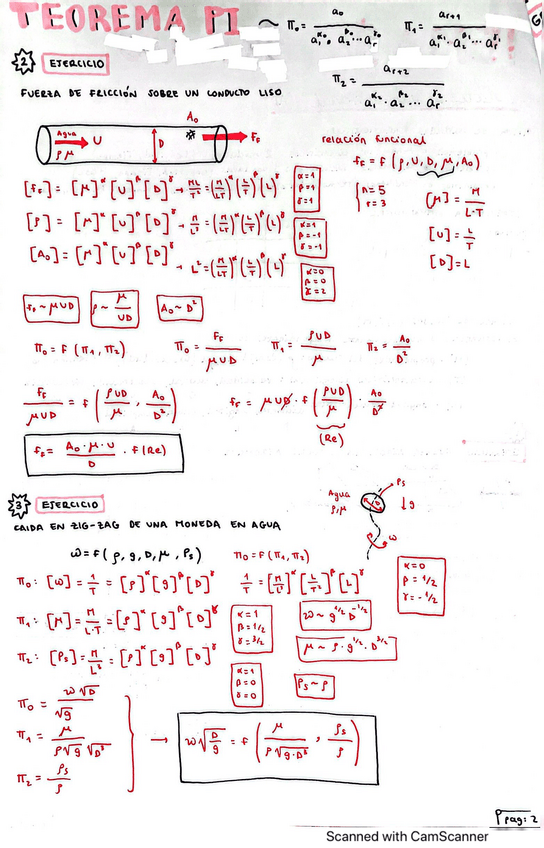 TEOREMA PI ~ Π₀ = a₀ / (a₁^α₀ · a₂^β₀ ... aᵣ^γ₀) Π₁ = aᵣ₊₁ / (a₁^α₁ · a₂^β₁ ... aᵣ^γ₁)
Π₂ = aᵣ₊₂ / (a₁^α₂ · a₂^β₂ ... aᵣ^γ₂)
2 EJERCICIO
FUERZA DE FRICCIÓN SOBRE UN CONDUCTO LISO
A₀
Agua
ρ μ U D F_F
relación funcional
f_F = F (ρ, U, D, μ, A₀)
{ n = 5
r = 3
[μ] = M / L·T
[U] = L / T
[D] = L
[f_F] = [μ]^α [U]^β [D]^γ → ML/T² = (M/LT)^α (L/T)^β (L)^γ
α = 1
β = 1
γ = 1
[ρ] = [μ]^α [U]^β [D]^γ → M/L³ = (M/LT)^α (L/T)^β (L)^γ
α = 1
β = -1
γ = -1
[A₀] = [μ]^α [U]^β [D]^γ → L² = (M/LT)^α (L/T)^β (L)^γ
α = 0
β = 0
γ = 2
f_F ~ μUD ρ ~ μ/UD A₀ ~ D²
Π₀ = F (Π₁, Π₂) Π₀ = F_F / μUD Π₁ = ρUD / μ Π₂ = A₀ / D²
F_F / μUD = f (ρUD/μ, A₀/D²) f_F = μUD · f (ρUD/μ) · A₀/D²
(Re)
f_F = A₀·μ·U / D · f(Re)
3 EJERCICIO
CAIDA EN ZIG-ZAG DE UNA MONEDA EN AGUA
Agua
ρ, μ
D ρs ↓g
ω
ω = f (ρ, g, D, μ, ρs) Π₀ = F (Π₁, Π₂)
Π₀: [ω] = 1/T = [ρ]^α [g]^β [D]^γ 1/T = [M/L³]^α [L/T²]^β [L]^γ
α = 0
β = 1/2
γ = -1/2
Π₁: [μ] = M/L·T = [ρ]^α [g]^β [D]^γ
α = 1
β = 1/2
γ = 3/2
ω ~ g^1/2 D^-1/2
μ ~ ρ · g^1/2 · D^3/2
Π₂: [ρs] = M/L³ = [ρ]^α [g]^β [D]^γ
α = 1
β = 0
γ = 0
ρs ~ ρ
Π₀ = ω√D / √g
Π₁ = μ / ρ√g √D³
Π₂ = ρs / ρ
→ ω √(D/g) = f (μ / ρ√(g·D³), ρs/ρ)
pag: 2
Scanned with CamScanner